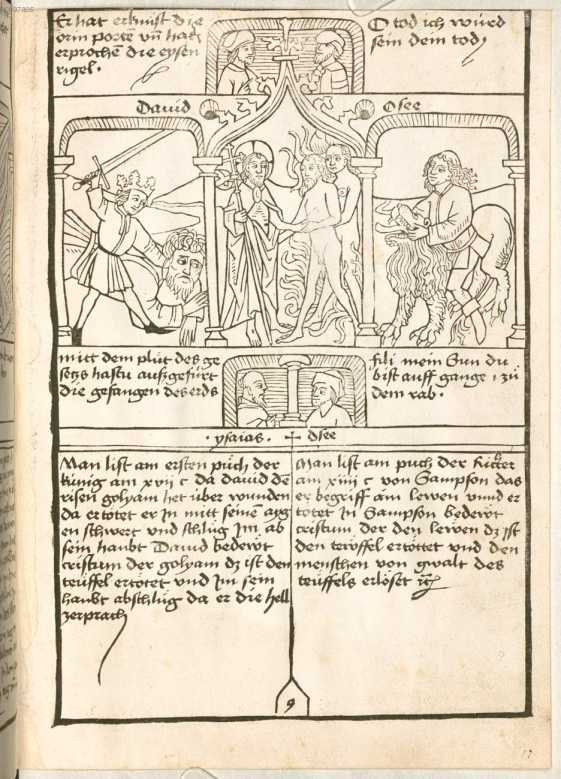 Er hat erknist die
O tod ich würd
orin porten vñ hat
sein dem tod
erprochē die eysen
rigel ·
David
Osee
mitt dem plut des ge
setz hastu aufzgefürt
die gefangen des erds
fili mein Sun du
bist auff gange · zü
dem rab ·
· ysaias · + osee
Man list am ersten puch der
künig am xvii c da david dē
risen golyam het über wunden
da ertötet er In mitt seinē ayg
en schwert und schlug Im ab
sein haubt David bedewt
cristum der golyam dz ist den
teüffel ertötet und Im sein
haubt abschlüg da er die hell
zerprach
Man list am puch der Richter
am xiiii c von Sampson das
er begriff am lewen vnnd er
totet In Sampson bedewt
cristum der den lewen dz yst
den tewffel ertöttet und den
menschen von gwalt des
teüffels erlöset
9
17